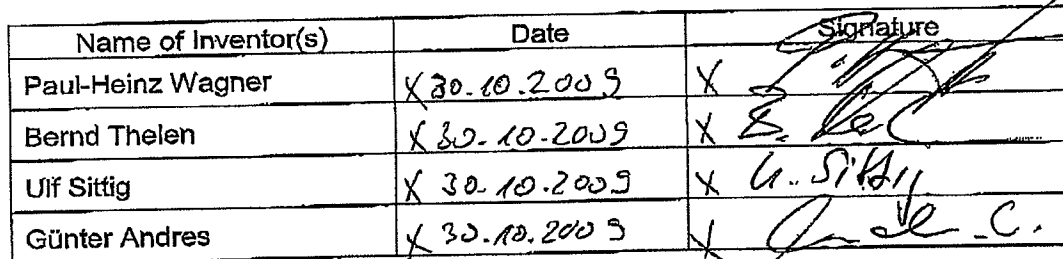 Name of Inventor(s) Date Signature
Paul-Heinz Wagner X 30.10.2009 X
Bernd Thelen X 30.10.2009 X B.
Ulf Sittig X 30.10.2009 X U. Sittig
Günter Andres X 30.10.2009 X